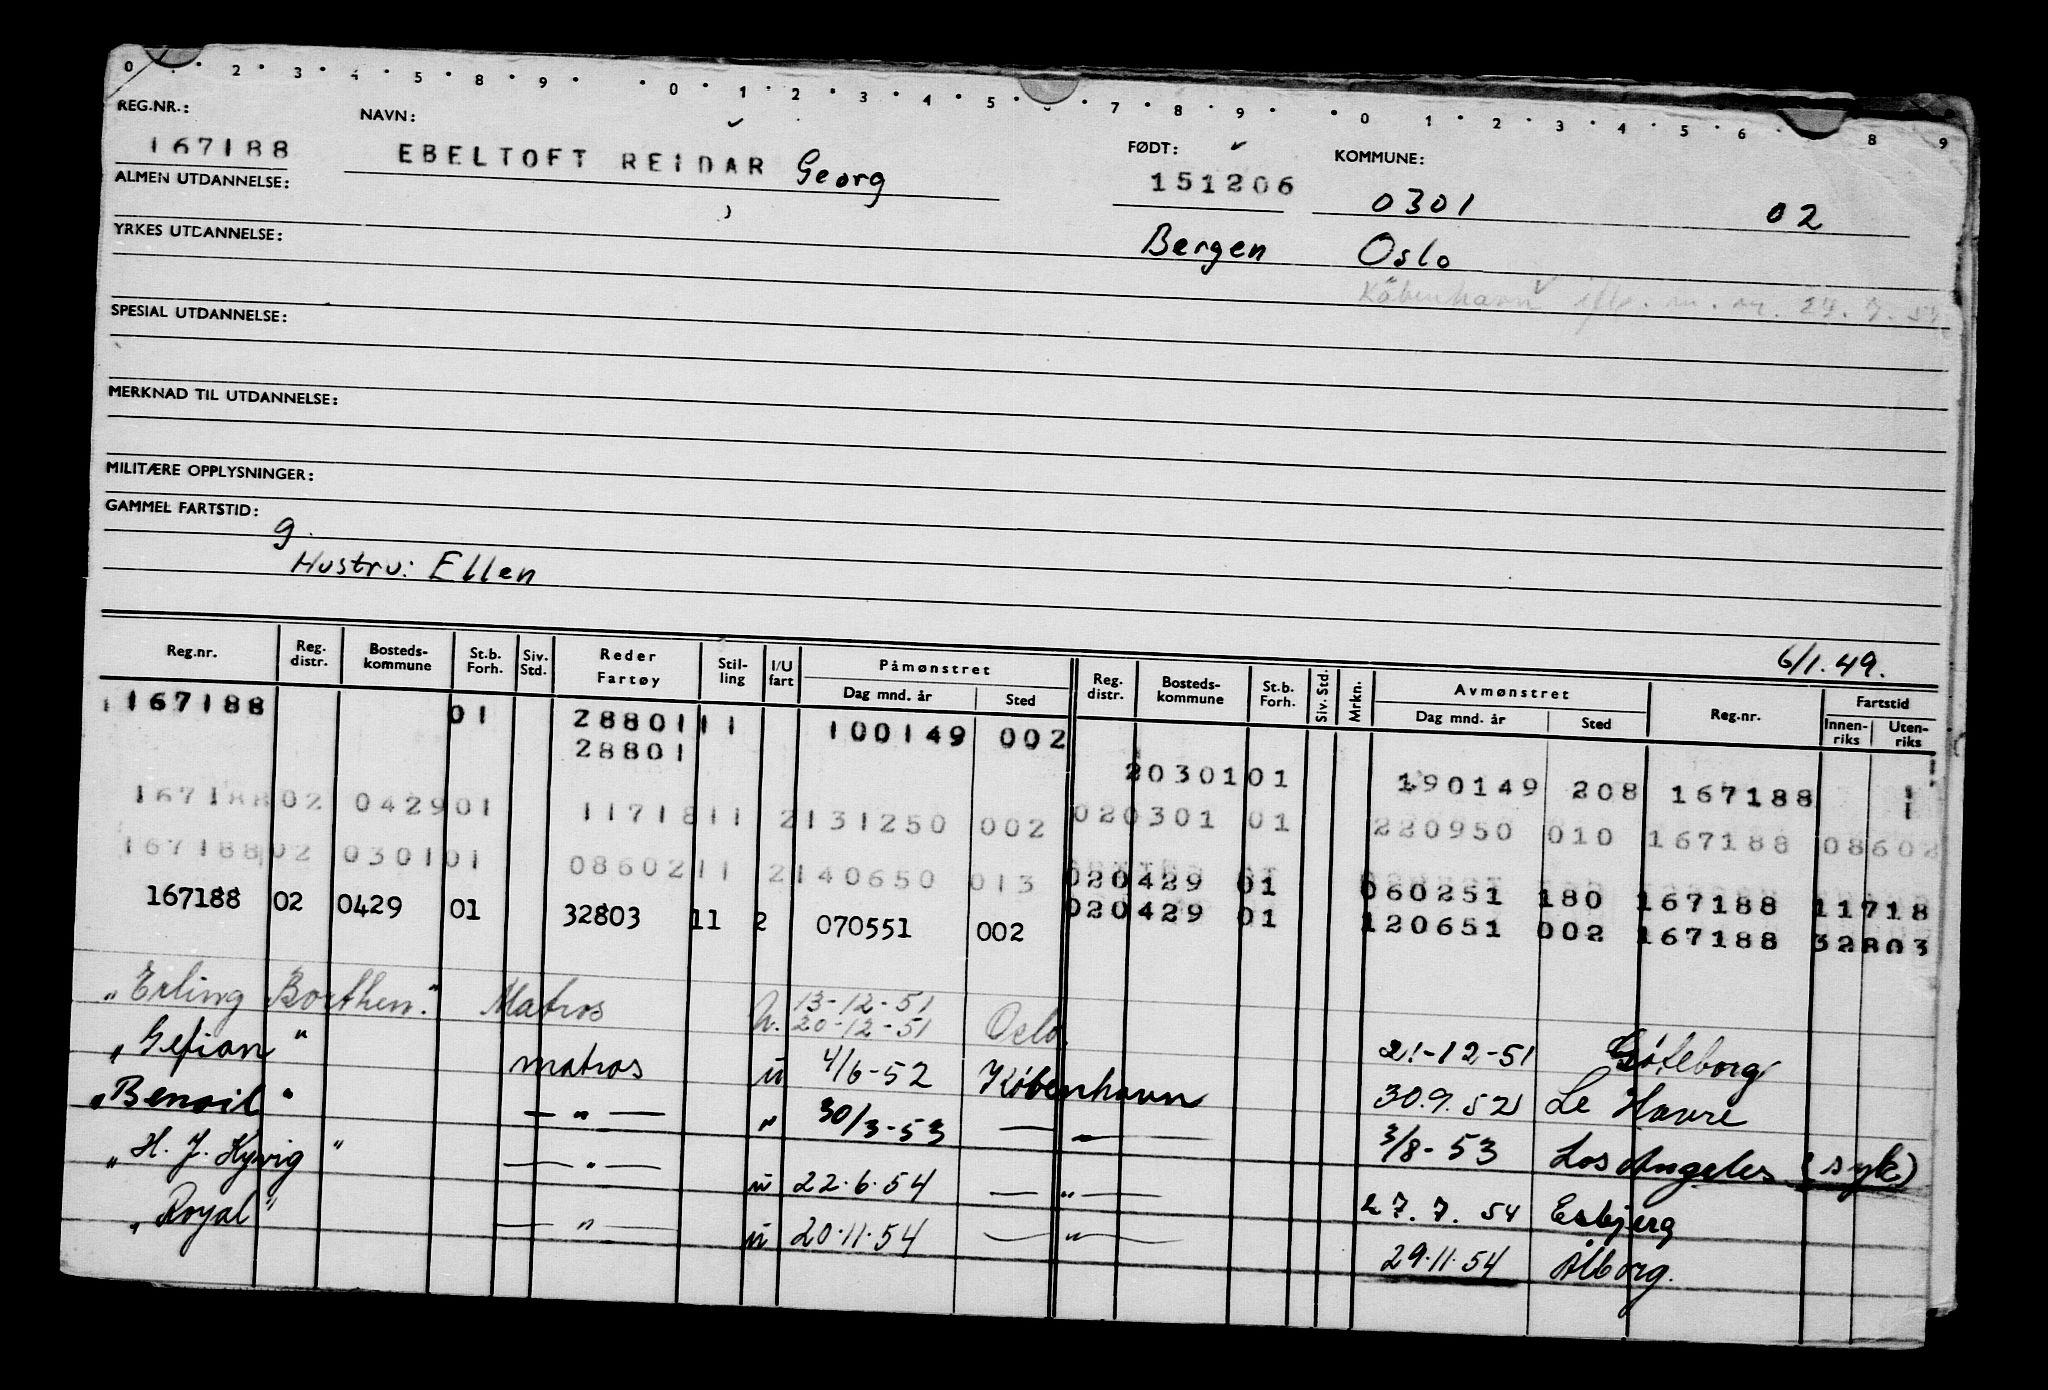 0 · 2 · 3 · 4 · 5 · 8 · 9 · · 0 · 1 · 2 · 3 · 4 · 5 · 7 · 8 · 9 · · 0 · 1 · 2 · 3 · 4 · 5 · 6 · 8 9
REG.NR.: NAVN: FØDT: KOMMUNE:
167188 EBELTOFT REIDAR Georg 151206 0301 02
ALMEN UTDANNELSE:
YRKES UTDANNELSE: Bergen Oslo
København 24.7.54
SPESIAL UTDANNELSE:
MERKNAD TIL UTDANNELSE:
MILITÆRE OPPLYSNINGER:
GAMMEL FARTSTID:
g.
Hustru: Ellen
6/1.49.
Reg.nr. Reg. distr. Bosteds-kommune St.b. Forh. Siv. Std. Reder Fartøy Stil-ling I/U fart Påmønstret Dag mnd. år Sted Reg. distr. Bosteds-kommune St.b. Forh. Siv. Std. Mrkn. Avmønstret Dag mnd. år Sted Reg.nr. Fartstid Innen-riks Uten-riks
167188 01 28801 11 100149 002
28801 2 0301 01 190149 208 167188 1
167188 02 0429 01 11718 11 2 131250 002 02 0301 01 220950 010 167188 08602
167188 02 0301 01 08602 11 2 140650 013 02 0429 01 060251 180 167188 11718
167188 02 0429 01 32803 11 2 070551 002 02 0429 01 120651 002 167188 32803
"Erling Borthen." Matros u. 13-12-51 20-12-51 Oslo. 21-12-51 Göteborg
"Gefion" matros u 4/6-52 København 30.9.52 Le Havre
"Benoil" — " — " 30/3-53 — " — 3/8-53 Los Angeles (syk)
"H. J. Kyvig" — " — u 22.6.54 — " — 27.7.54 Esbjerg
"Royal" — " — u 20.11.54 — " — 29.11.54 Ålborg.